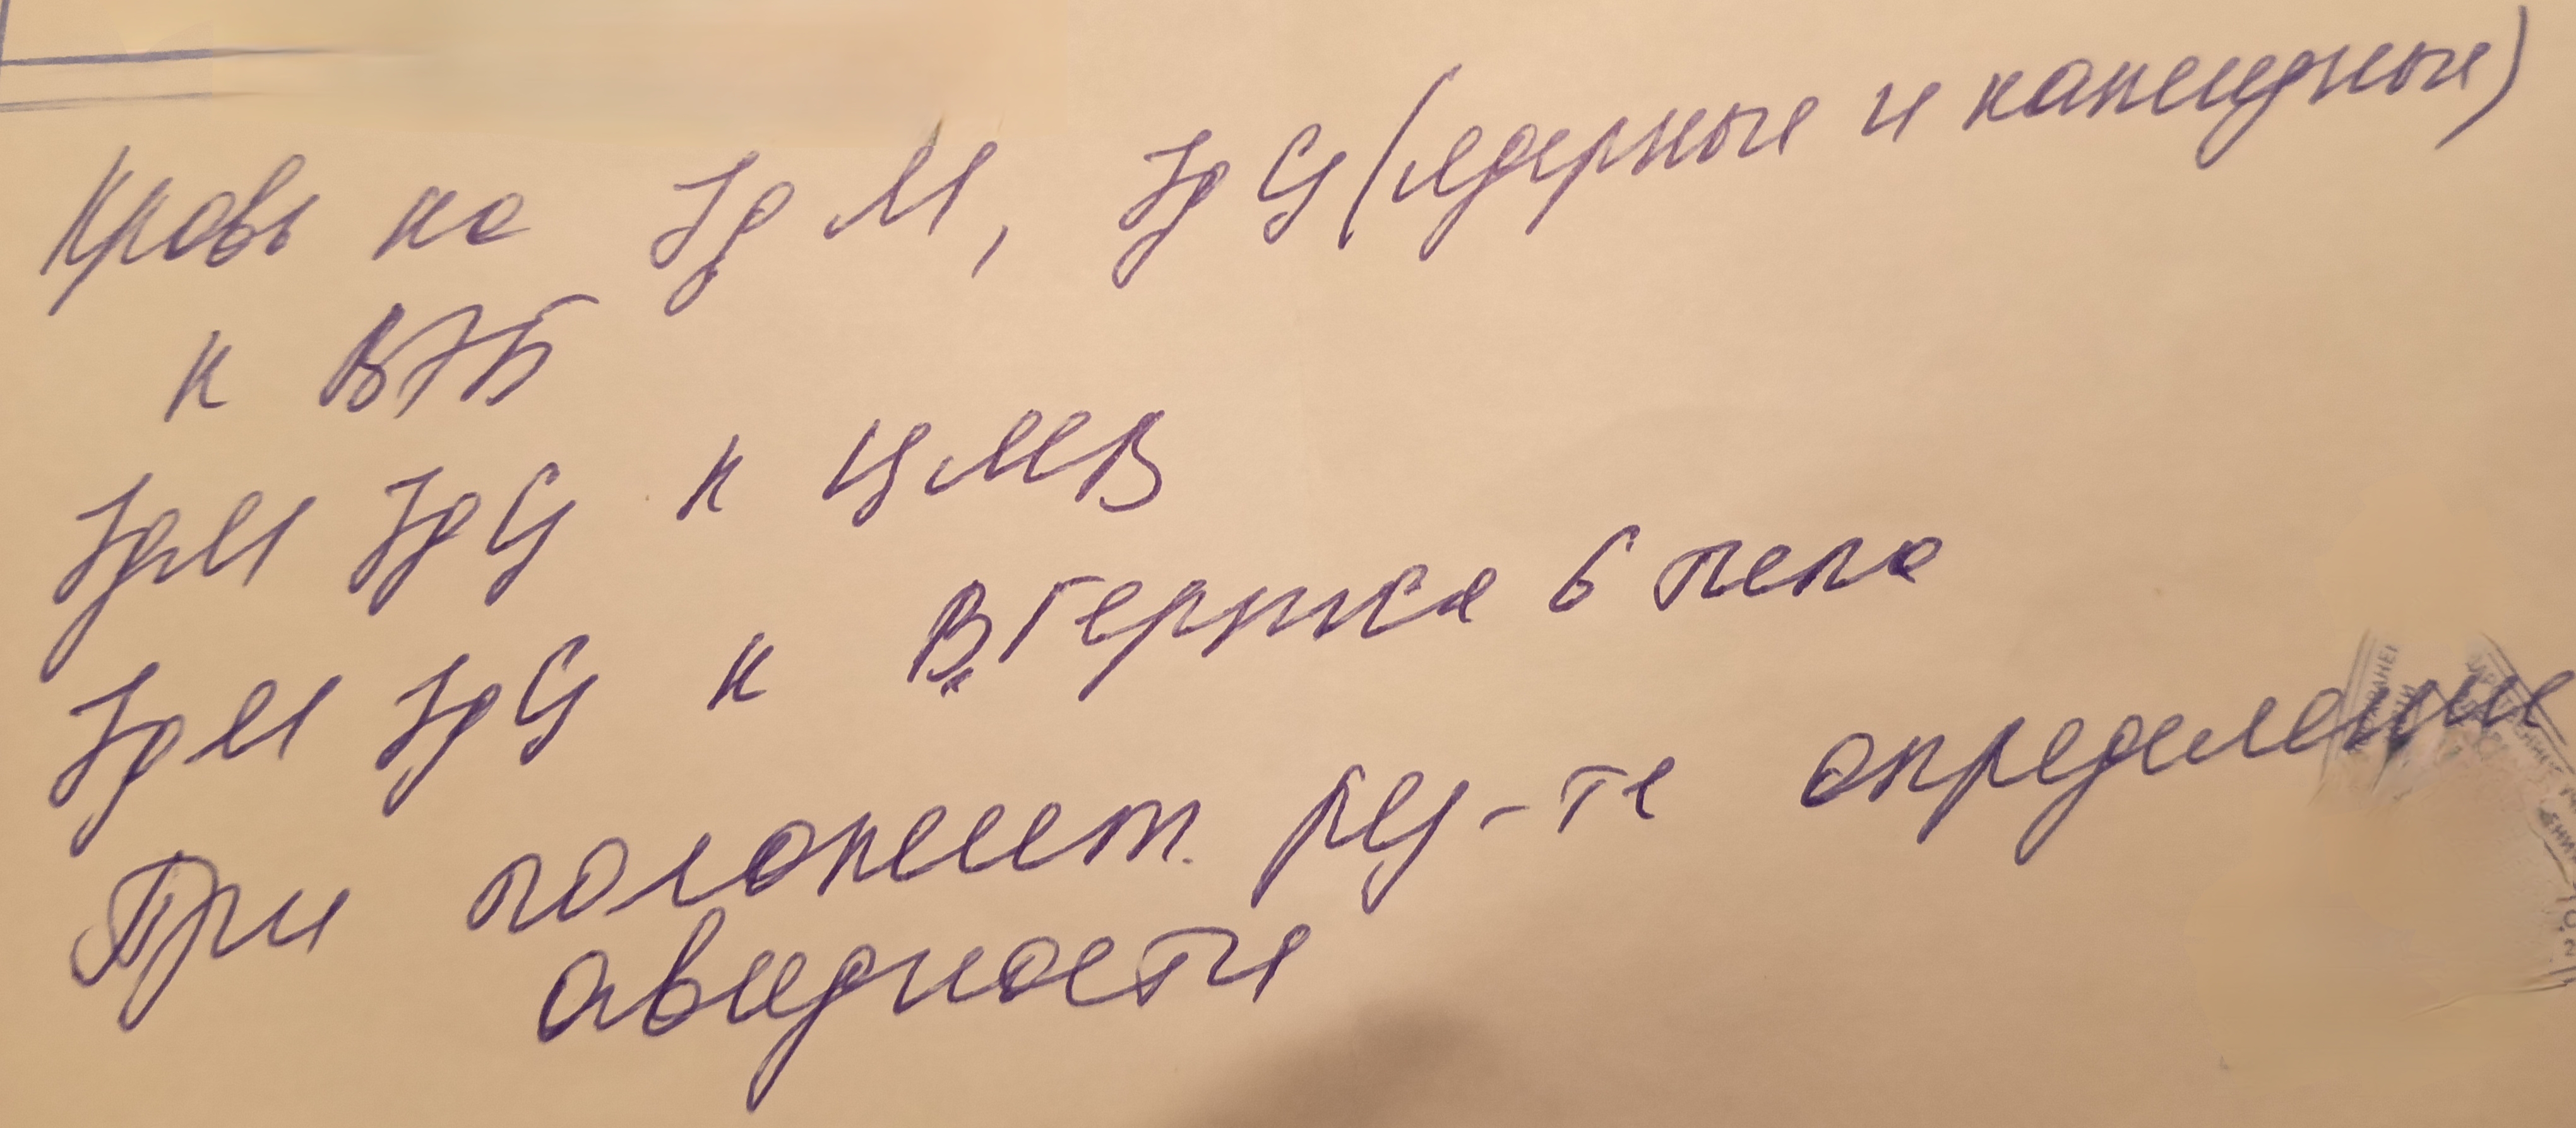 Кровь на Jg M, Jg G (ядерные и капсидные)
к ВЭБ
JgM JgG к ЦМВ
JgM JgG к В.Герпеса 6 типа
При положит. рез-те определении
авидности